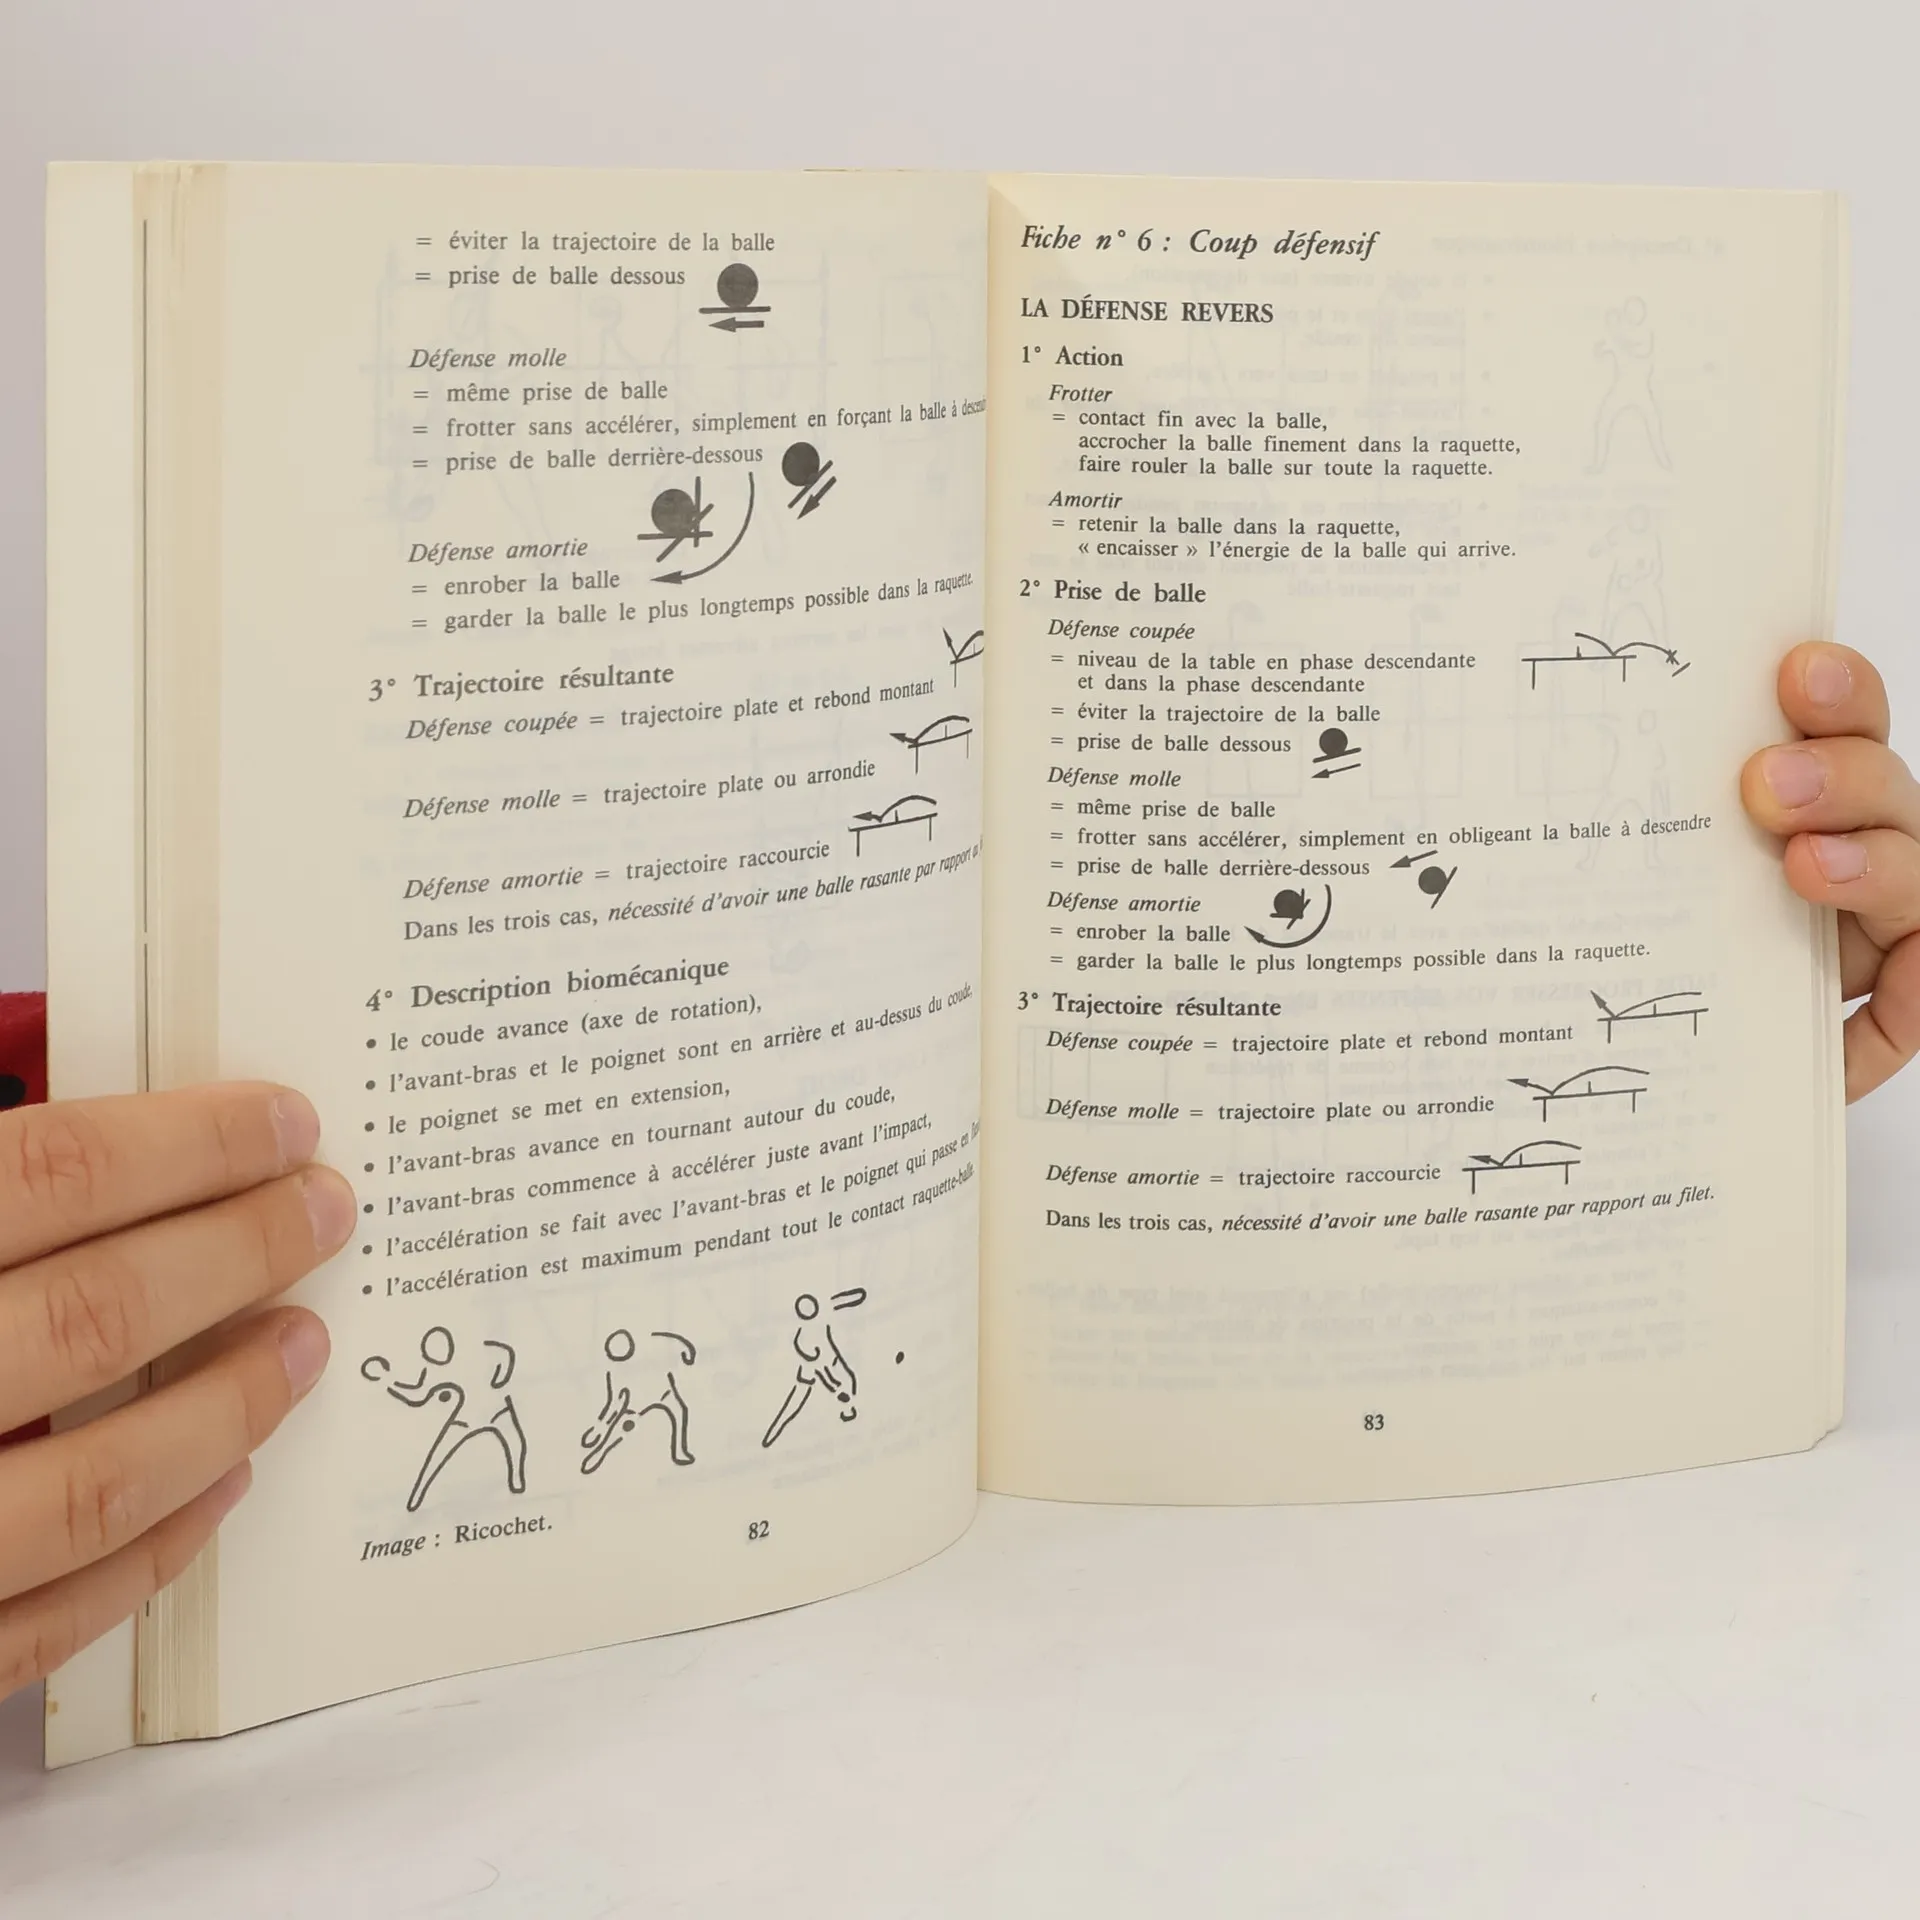 = éviter la trajectoire de la balle
= prise de balle dessous
Défense molle
= même prise de balle
= frotter sans accélérer, simplement en forçant la balle à
= prise de balle derrière-dessous
Défense amortie
= enrober la balle
= garder la balle le plus longtemps possible dans la raquette.
3° Trajectoire résultante
Défense coupée = trajectoire plate et rebond montant
Défense molle = trajectoire plate ou arrondie
Défense amortie = trajectoire raccourcie
Dans les trois cas, nécessité d'avoir une balle rasante par rapport
4° Description biomécanique
• le coude avance (axe de rotation),
• l'avant-bras et le poignet sont en arrière et au-dessus du coude,
• le poignet se met en extension,
• l'avant-bras avance en tournant autour du coude,
• l'avant-bras commence à accélérer juste avant l'impact,
• l'accélération se fait avec l'avant-bras et le poignet qui passe en
• l'accélération est maximum pendant tout le contact raquette-balle
Image : Ricochet.
82
Fiche n° 6 : Coup défensif
LA DÉFENSE REVERS
1° Action
Frotter
= contact fin avec la balle,
accrocher la balle finement dans la raquette,
faire rouler la balle sur toute la raquette.
Amortir
= retenir la balle dans la raquette,
« encaisser » l'énergie de la balle qui arrive.
2° Prise de balle
Défense coupée
= niveau de la table en phase descendante
et dans la phase descendante
= éviter la trajectoire de la balle
= prise de balle dessous
Défense molle
= même prise de balle
= frotter sans accélérer, simplement en obligeant la balle à descendre
= prise de balle derrière-dessous
Défense amortie
= enrober la balle
= garder la balle le plus longtemps possible dans la raquette.
3° Trajectoire résultante
Défense coupée = trajectoire plate et rebond montant
Défense molle = trajectoire plate ou arrondie
Défense amortie = trajectoire raccourcie
Dans les trois cas, nécessité d'avoir une balle rasante par rapport au filet.
83